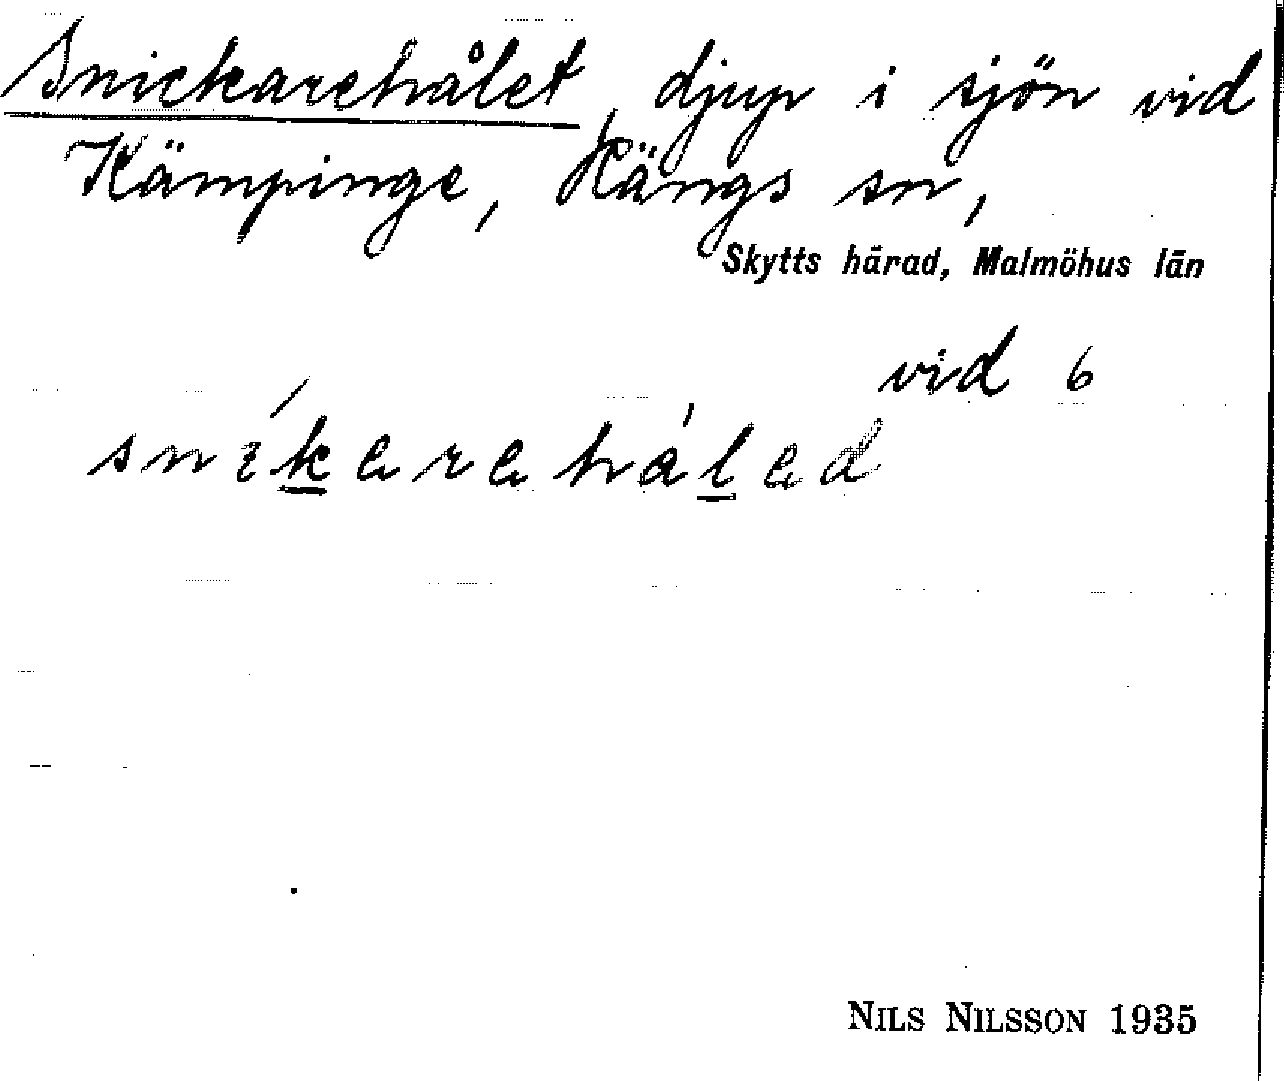 Snickarehålet, djup i sjön vid
Kämpinge, Kängs sn,
Skytts härad, Malmöhus län
vid 6
NILS NILSSON 1935